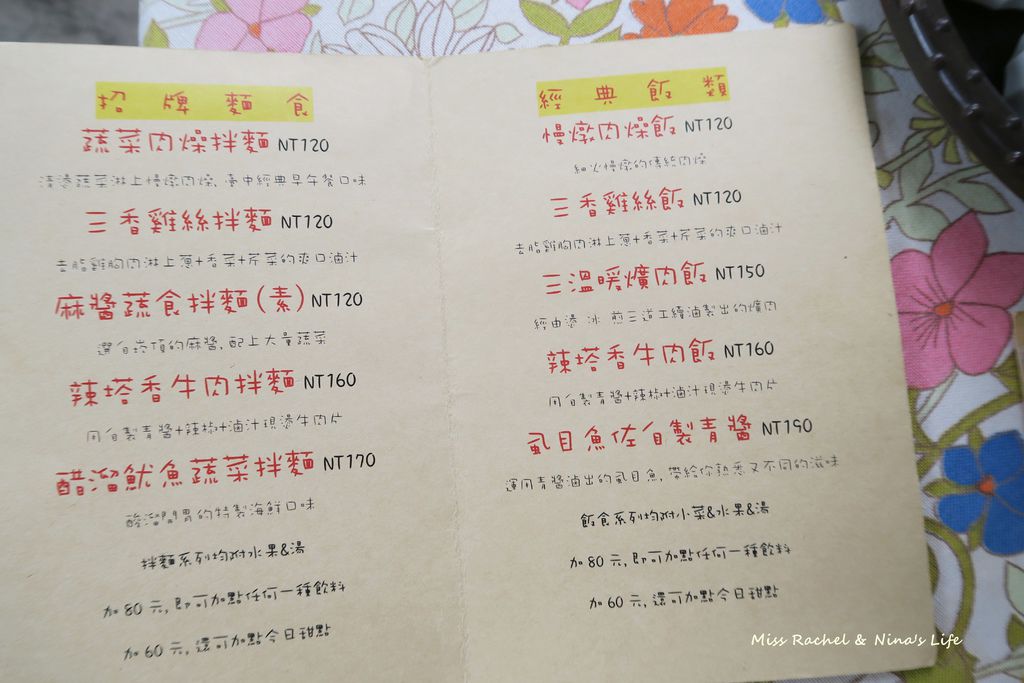 招牌麵食
蔬菜肉燥拌麵 NT120
清燙蔬菜淋上慢燉肉燥, 臺中經典早午餐口味
三香雞絲拌麵 NT120
去脂雞胸肉淋上蔥+香菜+芹菜的爽口滷汁
麻醬蔬食拌麵(素) NT120
選自崁頂的麻醬, 配上大量蔬菜
辣塔香牛肉拌麵 NT160
用自製青醬+辣椒+滷汁現燙牛肉片
醋溜魷魚蔬菜拌麵 NT170
酸溜開胃的特製海鮮口味
拌麵系列均附水果&湯
加 80 元, 即可加點任何一種飲料
加 60 元, 還可加點今日甜點
經典飯類
慢燉肉燥飯 NT120
細火慢燉的傳統肉燥
三香雞絲飯 NT120
去脂雞胸肉淋上蔥+香菜+芹菜的爽口滷汁
三溫暖爌肉飯 NT150
經由燙 冰 煎三道工續滷製出的爌肉
辣塔香牛肉飯 NT160
用自製青醬+辣椒+滷汁現燙牛肉片
虱目魚佐自製青醬 NT190
運用青醬滷出的虱目魚, 帶給你熟悉又不同的滋味
飯食系列均附小菜&水果&湯
加 80 元, 即可加點任何一種飲料
加 60 元, 還可加點今日甜點
Miss Rachel & Nina's Life